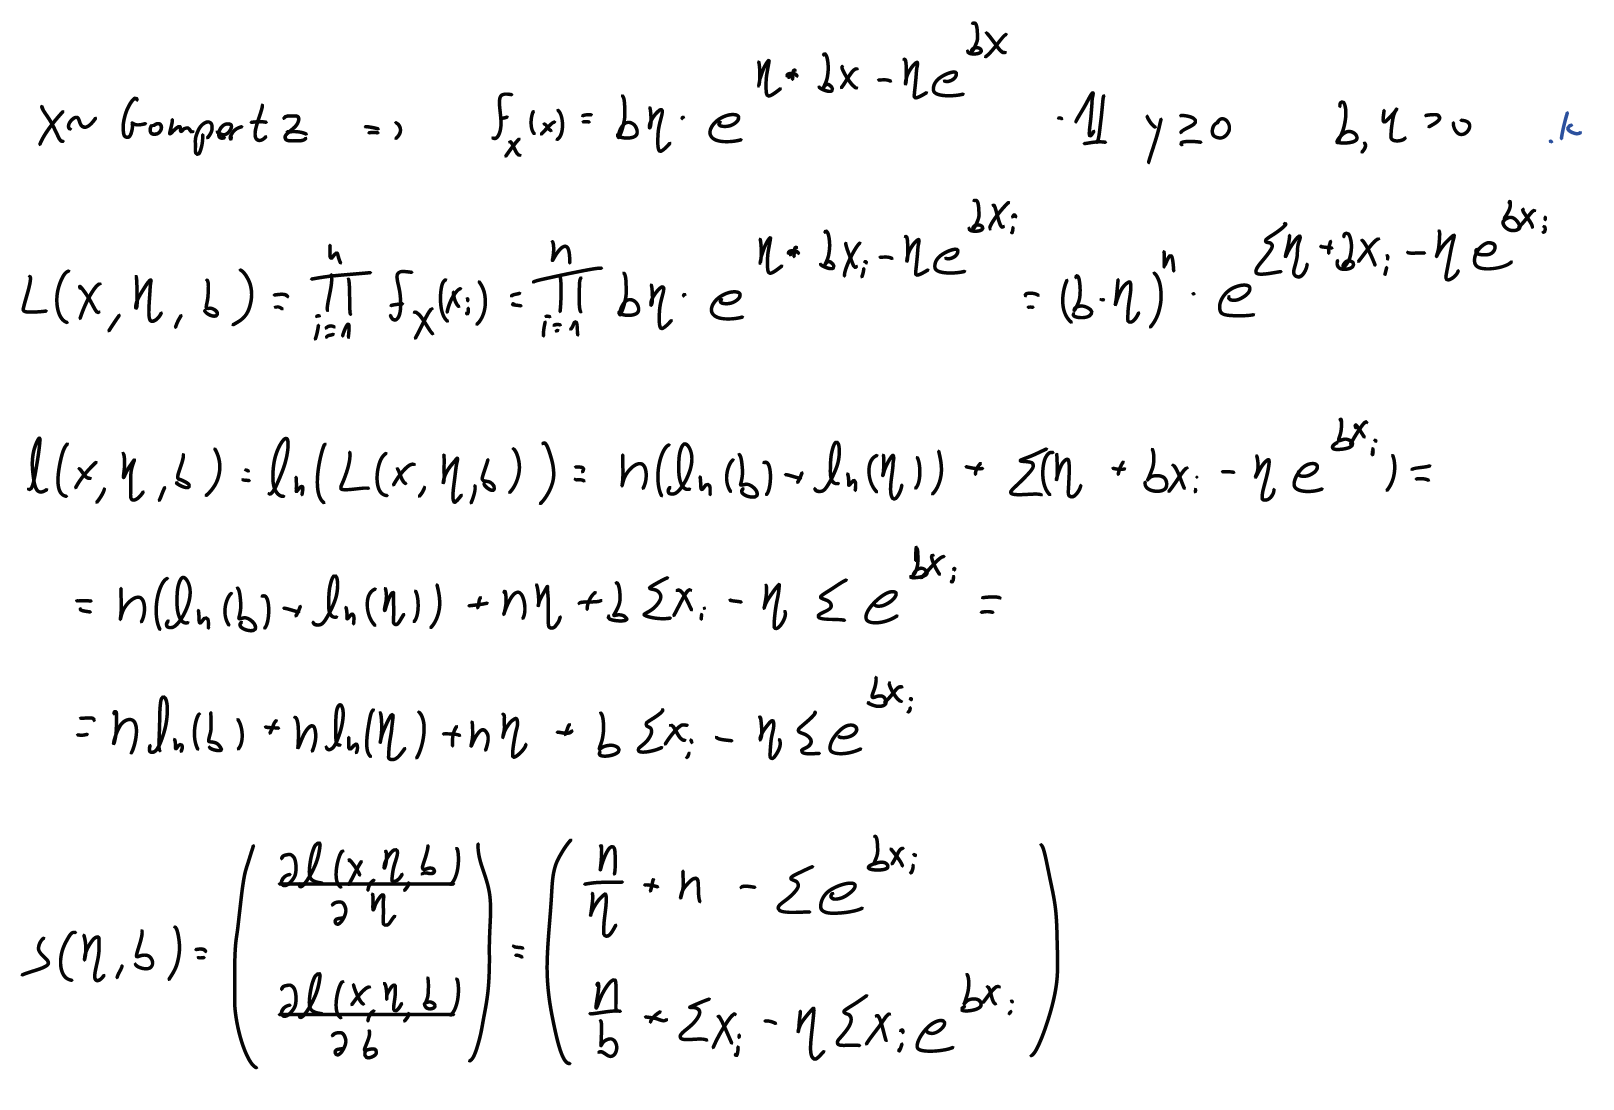 X ~ Gompertz => f_X(x) = bη · e^{η + bx - ηe^{bx}} · 𝟙 y ≥ 0 b, η > 0 .k
L(x, η, b) = ∏_{i=1}^{n} f_X(x_i) = ∏_{i=1}^{n} bη · e^{η + bx_i - ηe^{bx_i}} = (b·η)^n · e^{Ση + bx_i - ηe^{bx_i}}
l(x, η, b) = ln(L(x, η, b)) = n(ln(b) + ln(η)) + Σ(η + bx_i - ηe^{bx_i}) =
= n(ln(b) + ln(η)) + nη + bΣx_i - ηΣe^{bx_i} =
= n ln(b) + n ln(η) + nη + bΣx_i - ηΣe^{bx_i}
s(η, b) = (∂l(x, η, b)/∂η ; ∂l(x, η, b)/∂b) = (n/η + n - Σe^{bx_i} ; n/b + Σx_i - ηΣx_i e^{bx_i})